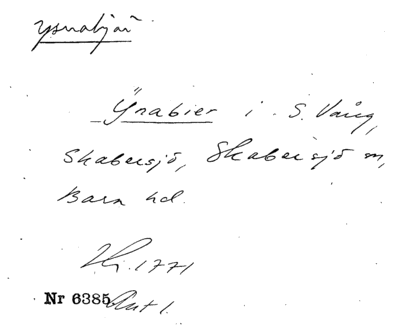 Ysnabjär
Ÿnabier i S. Vång,
Skabersjö, Skabersjö sn,
Bara hd.
1771
Nr 6385 Akt 1.